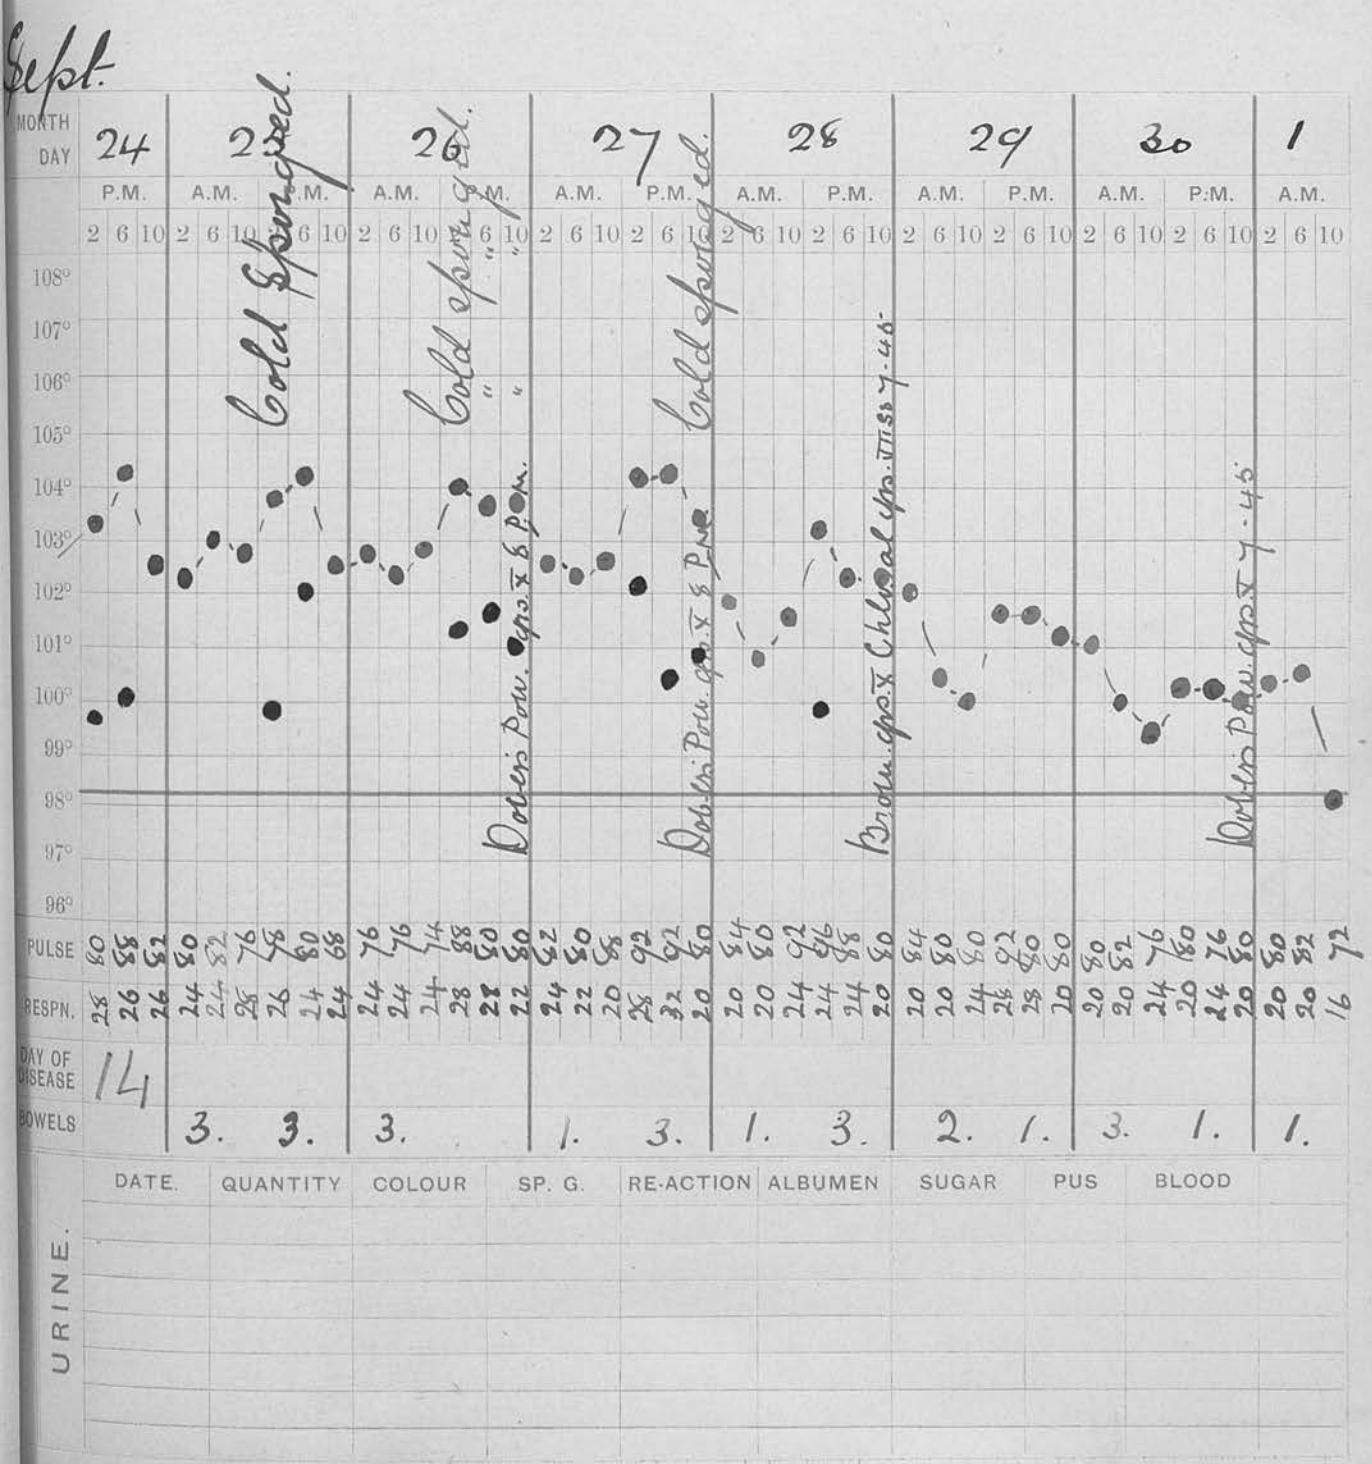 Sept.
MONTH
DAY 24 25 26 27 28 29 30 1
P.M. A.M. P.M. A.M. P.M. A.M. P.M. A.M. P.M. A.M. P.M. A.M. P.M. A.M.
2 6 10 2 6 10 2 6 10 2 6 10 2 6 10 2 6 10 2 6 10 2 6 10 2 6 10 2 6 10 2 6 10 2 6 10 2 6 10 2 6 10
Cold Sponged.
Cold sponged.
" "
" "
Cold sponged.
108°
107°
106°
105°
104°
103°
102°
101°
100°
99°
98°
97°
96°
Dovers Pow. grs. X 8 P.M.
Dovers Pow. grs. X 8 P.M.
Brom. grs. X Chloral grs. 7-45
Dovers Pow. grs. X 7-45
PULSE 80 88 82 80 82 76 78 80 68 76 76 74 88 80 80 82 80 88 92 92 80 84 80 92 96 88 80 84 80 80 92 80 80 80 82 76 80 76 80 80 82 72
RESPN. 28 26 26 24 24 28 26 24 24 24 24 24 28 28 22 24 22 20 28 32 20 20 20 24 24 24 20 20 20 24 28 28 20 20 20 24 20 24 20 20 20 16
DAY OF
DISEASE 14
BOWELS 3. 3. 3. 1. 3. 1. 3. 2. 1. 3. 1. 1.
URINE.
DATE. QUANTITY COLOUR SP. G. RE-ACTION ALBUMEN SUGAR PUS BLOOD